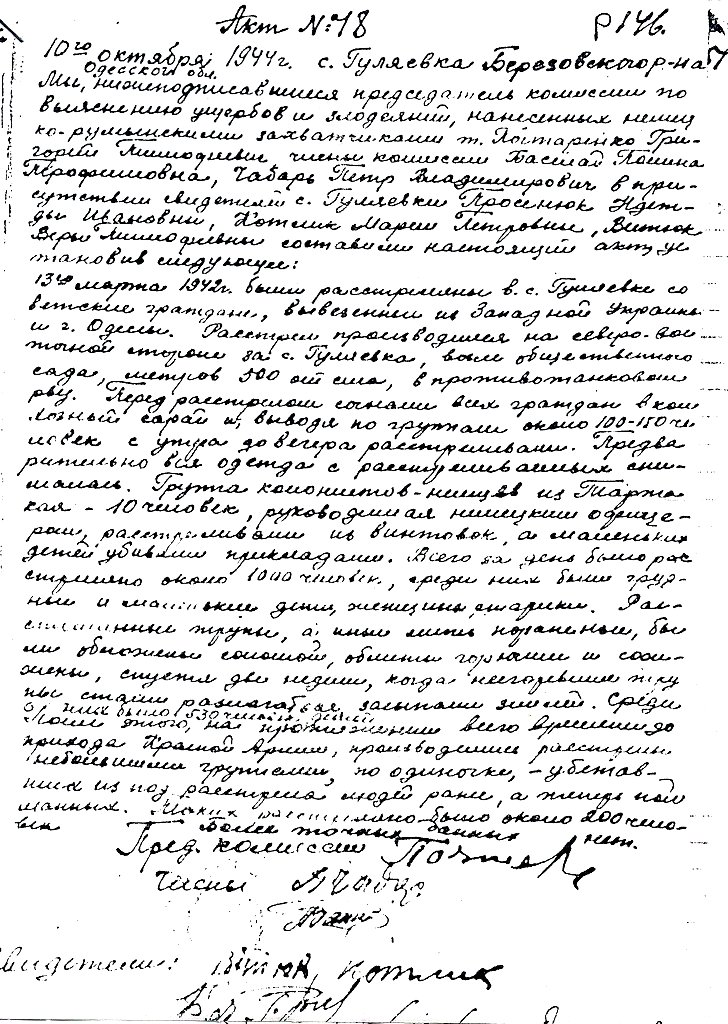 Акт №18 р 146.
10го октября 1944г. с. Гуляевка Березовского р-на
Одесской обл.
Мы, нижеподписавшиеся председатель комиссии по
выяснению ущербов и злодеяний, нанесенных немец
ко-румынскими захватчиками т. Гри-
горий Тимофеевич члены комиссии Полина
Трофимовна, Чабарь Петр Владимирович в при-
сутствии свидетелей с. Гуляевки Просенюк Надеж-
ды Ивановны, Котлик Марии Петровны, Витюк
Веры Тимофеевны составили настоящий акт, ус
тановив следующее:
13го марта 1942г. были расстреляны в с. Гуляевке со
ветские граждане, вывезенные из Западной Украины
и г. Одессы. Расстрел производился на северо-вос
точной стороне за с. Гуляевка, возле общественного
сада, метров 500 от села, в противотанковом
рву. Перед расстрелом согнали всех граждан в кол
хозный сарай и, выводя по группам около 100-150 че
ловек с утра до вечера расстреливали. Предва
рительно вся одежда с расстреливаемых сни-
малась. Группа колонистов-немцев из
- 10 человек, руководимая немецким офице-
ром, расстреливали из винтовок, а маленьких
детей убивали прикладами. Всего за день было рас
стреляно около 1000 человек, среди них были груд-
ные и маленькие дети, женщины, старики. Рас-
стрелянные трупы, а иные лишь пораненые, бы
ли обложены соломой, облиты горючим и сож-
жены, спустя две недели, когда несгоревшие тру
пы стали разлагаться засыпали землей. Среди
них было 530 человек детей
После этого, на протяжении всего времени до
прихода Красной Армии, производились расстрелы
небольшими группами, по одиночке, - убежав-
ших из под расстрела людей ране, а теперь пой
манных. Таких расстреляно было около 200 чело-
век Более точных данных нет.
Пред. комиссии
Члены А Чабарь
свидетели: Витюк, Котлик